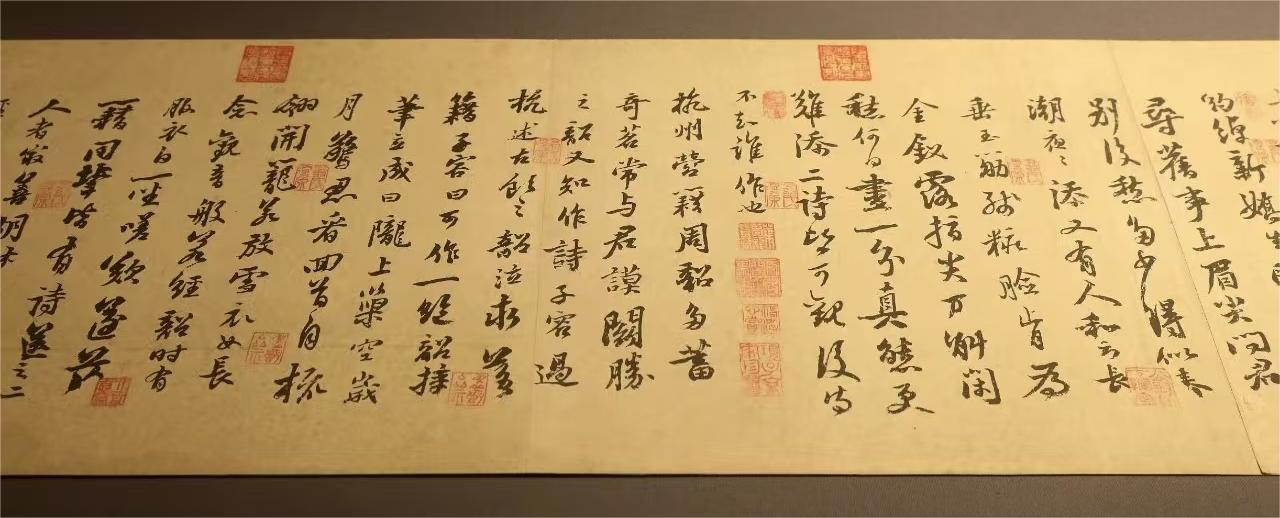 約綽新嬌生眼
尋舊事上眉尖問君
別後愁多少得似春
潮夜〻添又有人和云長
垂玉筯殘粧臉肯為
金釵露指尖万斛閑
愁何日盡一分真態更
難添二詩皆可觀後詩
不知誰作也
杭州營籍周韶多蓄
奇茗常与君謨鬭勝
之韶又知作詩子容過
杭述古飲之韶泣求落
籍子容曰可作一絕韶援
筆立成曰隴上巢空歲
月驚忍看回首自梳
翎開籠若放雪衣女長
念觀音般若經韶時有
服衣白一坐嗟歎遂落
籍同輩皆有詩送之二
人者最善胡楚